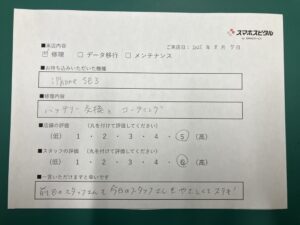 スマホスピタル
■来店内容
ご来店日: 2025 年 8月 7日
☑ 修理 □ データ移行 □ メンテナンス
■お持ち込みいただいた機種
iPhone SE3
■修理内容
バッテリー交換、コーティング
■店舗の評価 (丸を付けて評価してください)
(低) 1 ・ 2 ・ 3 ・ 4 ・ 5 (高)
■スタッフの評価 (丸を付けて評価してください)
(低) 1 ・ 2 ・ 3 ・ 4 ・ 5 (高)
■一言いただけますと幸いです
前回のスタッフさんも今回のスタッフさんもやさしくてステキ!